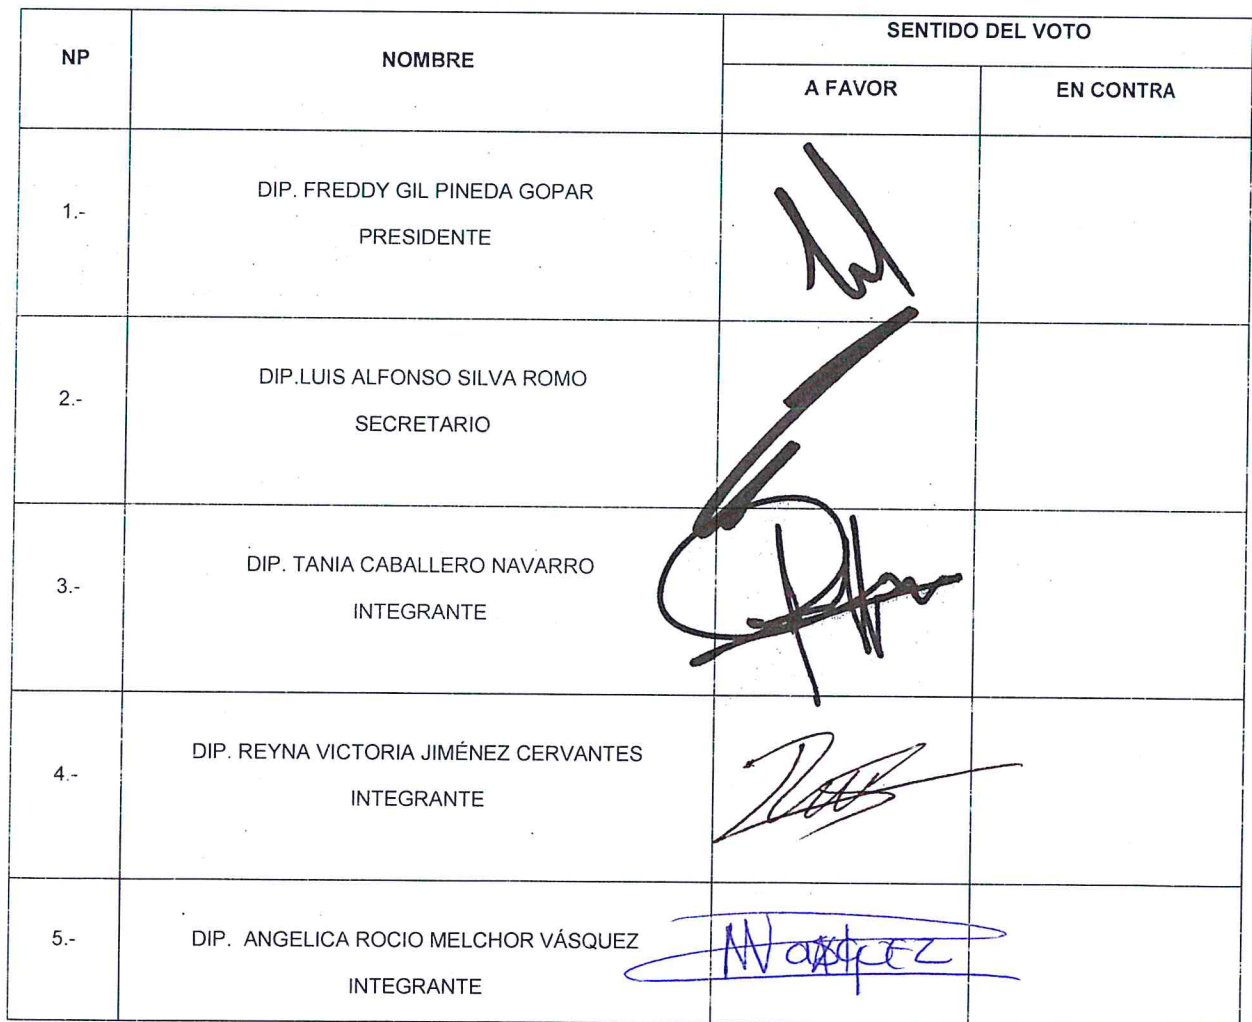 NP
NOMBRE
SENTIDO DEL VOTO
A FAVOR
EN CONTRA
1.-
DIP. FREDDY GIL PINEDA GOPAR
PRESIDENTE
2.-
DIP.LUIS ALFONSO SILVA ROMO
SECRETARIO
3.-
DIP. TANIA CABALLERO NAVARRO
INTEGRANTE
4.-
DIP. REYNA VICTORIA JIMÉNEZ CERVANTES
INTEGRANTE
5.-
DIP. ANGELICA ROCIO MELCHOR VÁSQUEZ
INTEGRANTE